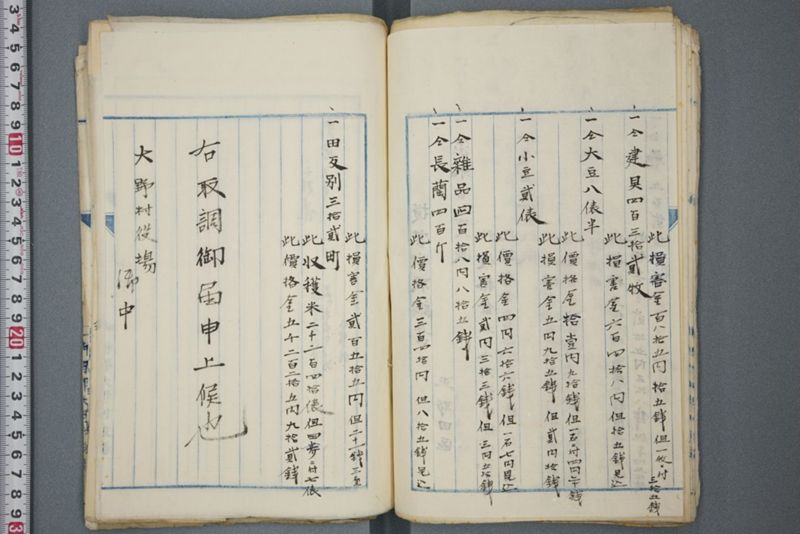 此損害金百八拾五円拾五銭 但一枚ニ付三拾五銭
一仝建具四百三拾貳枚
此損害金六百四拾八円 但拾五銭見込
一仝大豆八俵半
此價格金拾壹円九拾銭 但一石ニ付四円
此損害金五円九拾五銭 但貳円拾銭
一仝小豆貳俵
此價格金四円六拾六銭 但一石七円見込
此損害金貳円三拾三銭 但三円五拾銭
一仝雜品四百拾八円八拾五銭
一仝長藺四百斤
此價格金三百四拾円 但八拾五銭見込
此損害金貳百五拾五円 但
一田反別三拾貳町
此収穫米二千二百四拾俵 但四畝ニ付七俵
此價格金五千二百二拾五円九拾貳銭
右取調御届申上候也
大野村役場
御中